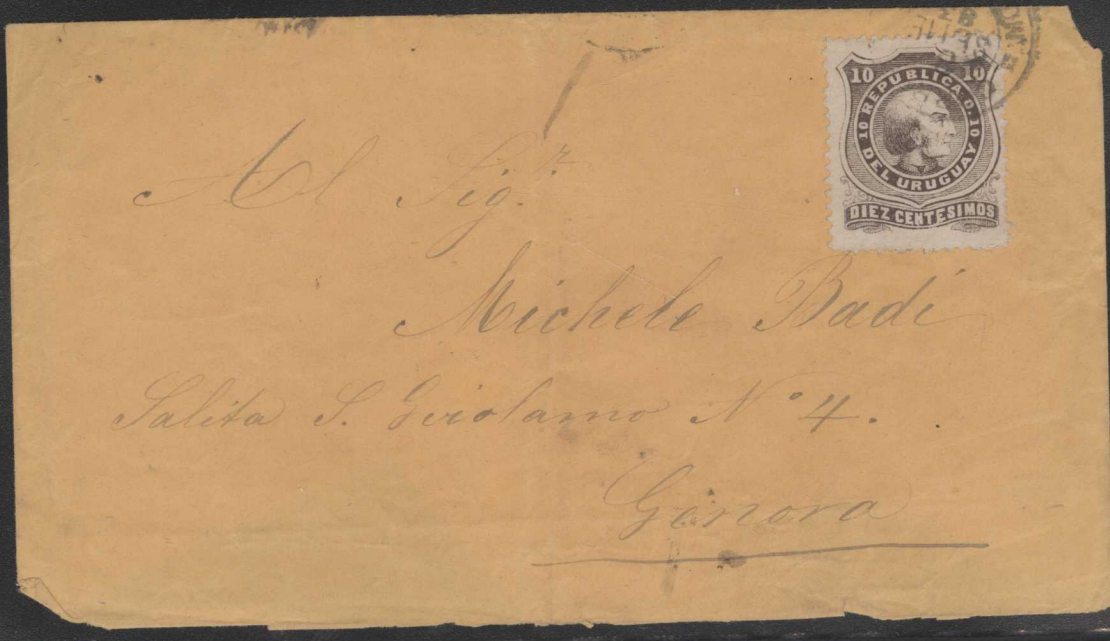 10 10
REPUBLICA O.
10 10
DEL URUGUAY
DIEZ CENTESIMOS
Al Sigr.
Michele Badi
Salita S. Girolamo No 4.
Genova